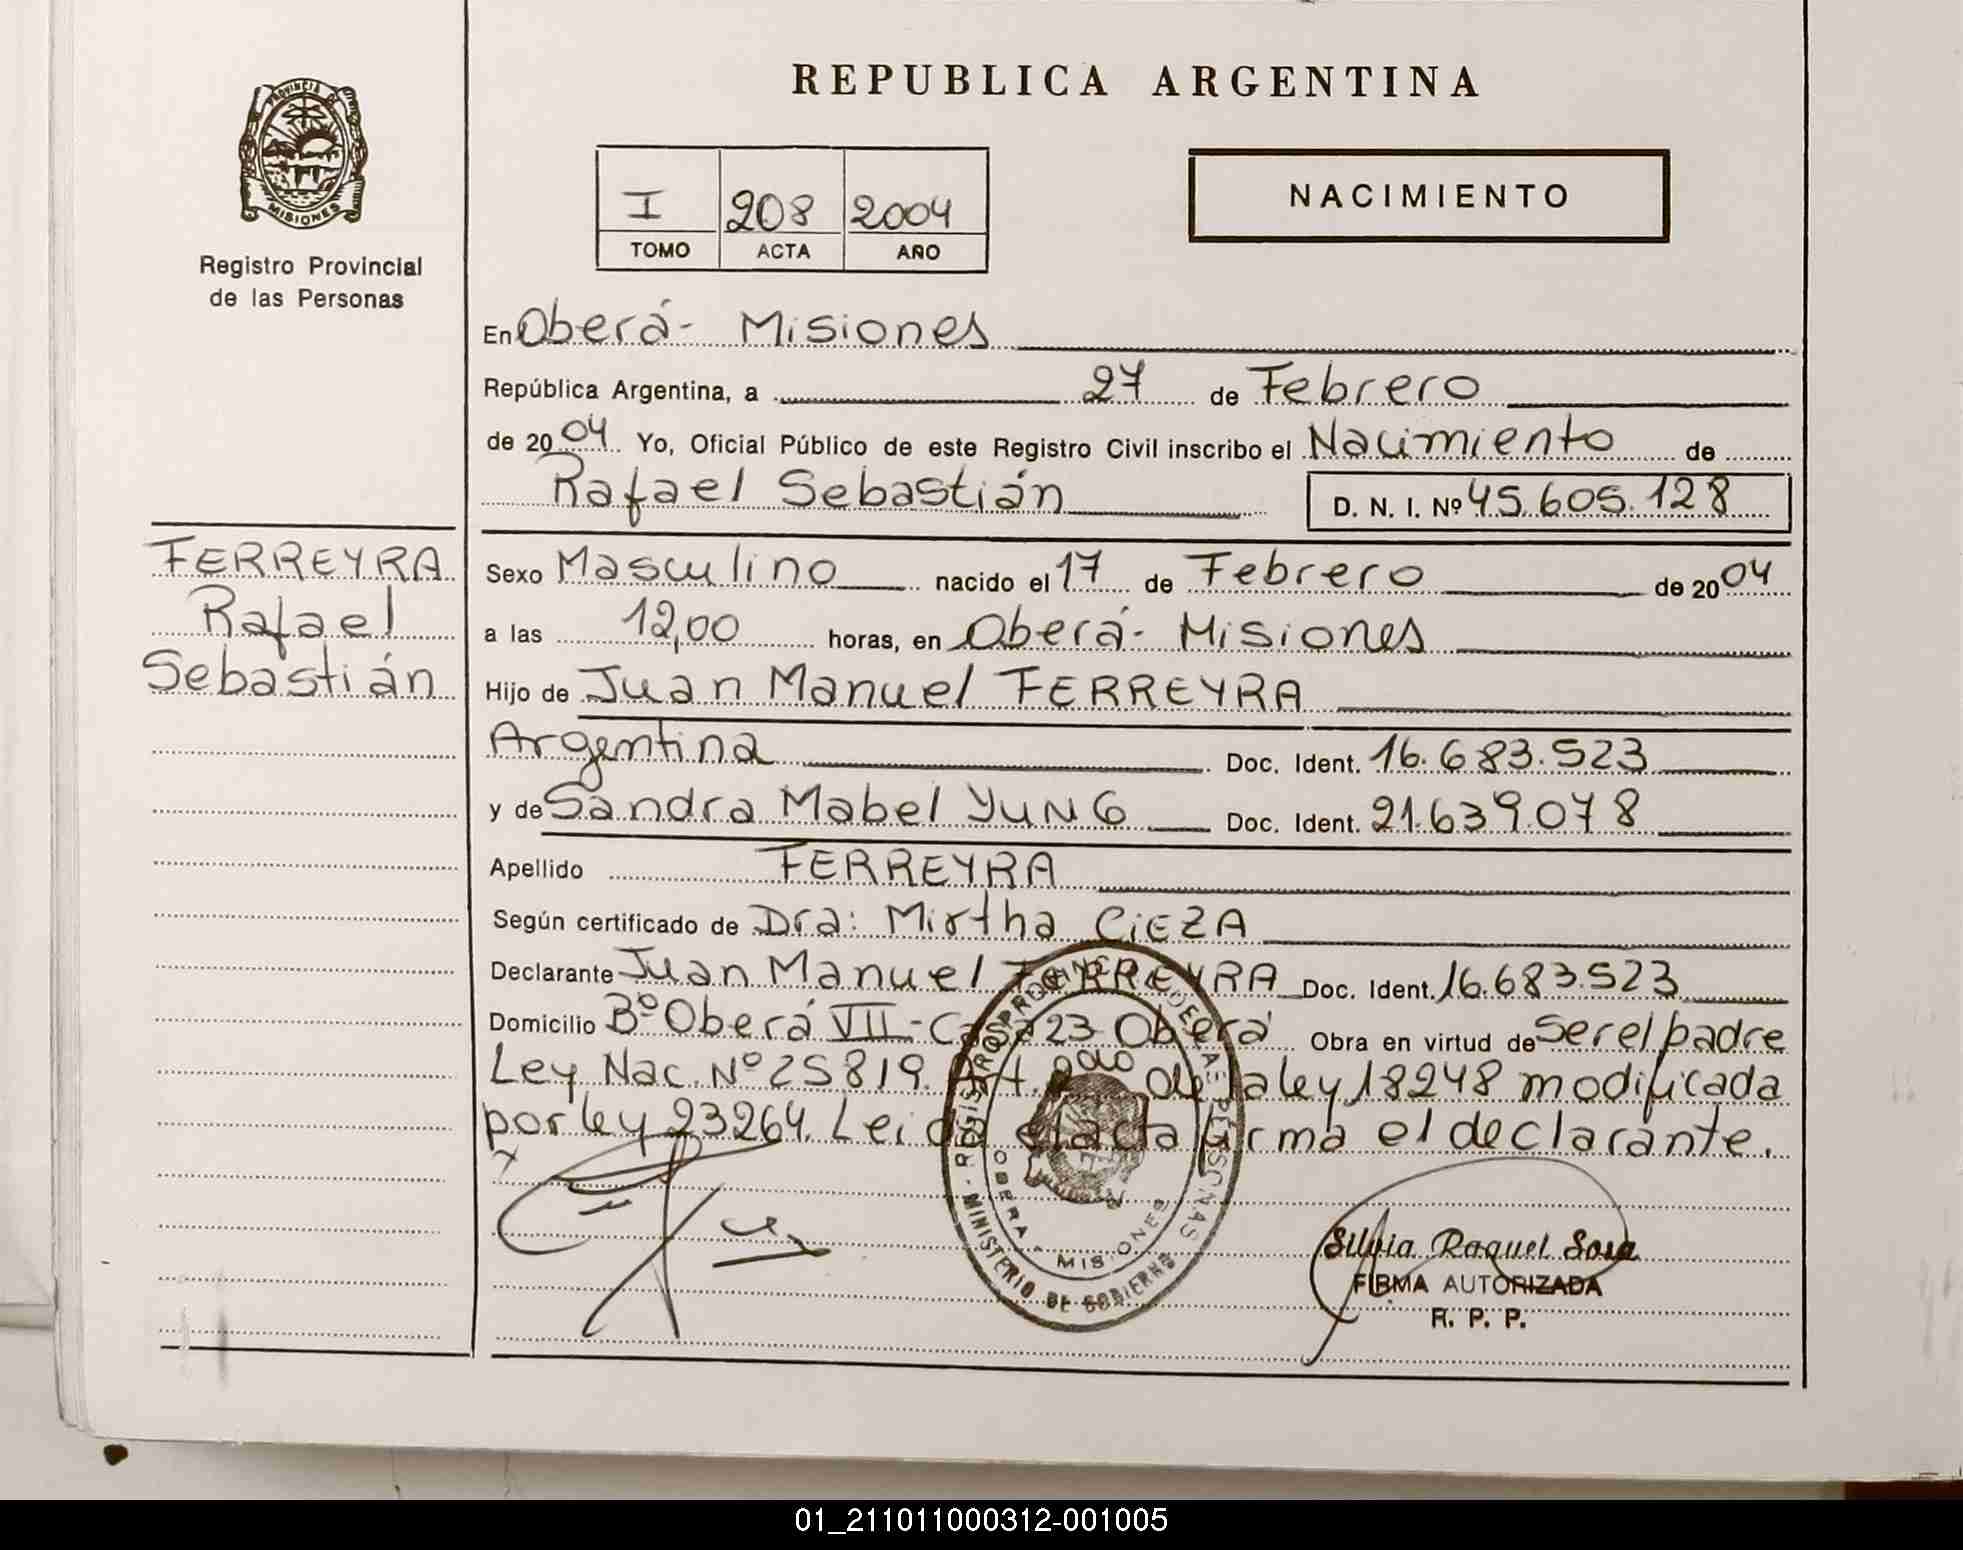 REPUBLICA ARGENTINA
PROVINCIA DE
MISIONES
Registro Provincial
de las Personas
I 208 2004
TOMO ACTA AÑO
NACIMIENTO
En Oberá- Misiones
República Argentina, a 27 de Febrero
de 2004 Yo, Oficial Público de este Registro Civil inscribo el Nacimiento de
Rafael Sebastián D. N. I. Nº 45.605.128
FERREYRA
Rafael
Sebastián
Sexo Masculino nacido el 17 de Febrero de 2004
a las 12,00 horas, en Oberá- Misiones
Hijo de Juan Manuel FERREYRA
Argentina Doc. Ident. 16.683.523
y de Sandra Mabel YUNG Doc. Ident. 21.639.078
Apellido FERREYRA
Según certificado de Dra: Mirtha CiEZA
Declarante Juan Manuel FERREYRA Doc. Ident. 16.683.523
Domicilio Bº Oberá VII- Casa 23- Oberá Obra en virtud de Ser el padre
Ley Nac. Nº 25819. Art. de la ley 18248 modificada
por ley 23264. Leida el acta firma el declarante.
REGISTRO PROVINCIAL DE LAS PERSONAS
- MINISTERIO DE GOBIERNO
OBERA - MISIONES
Silvia Raquel Sosa
FIRMA AUTORIZADA
R. P. P.
01_211011000312-001005